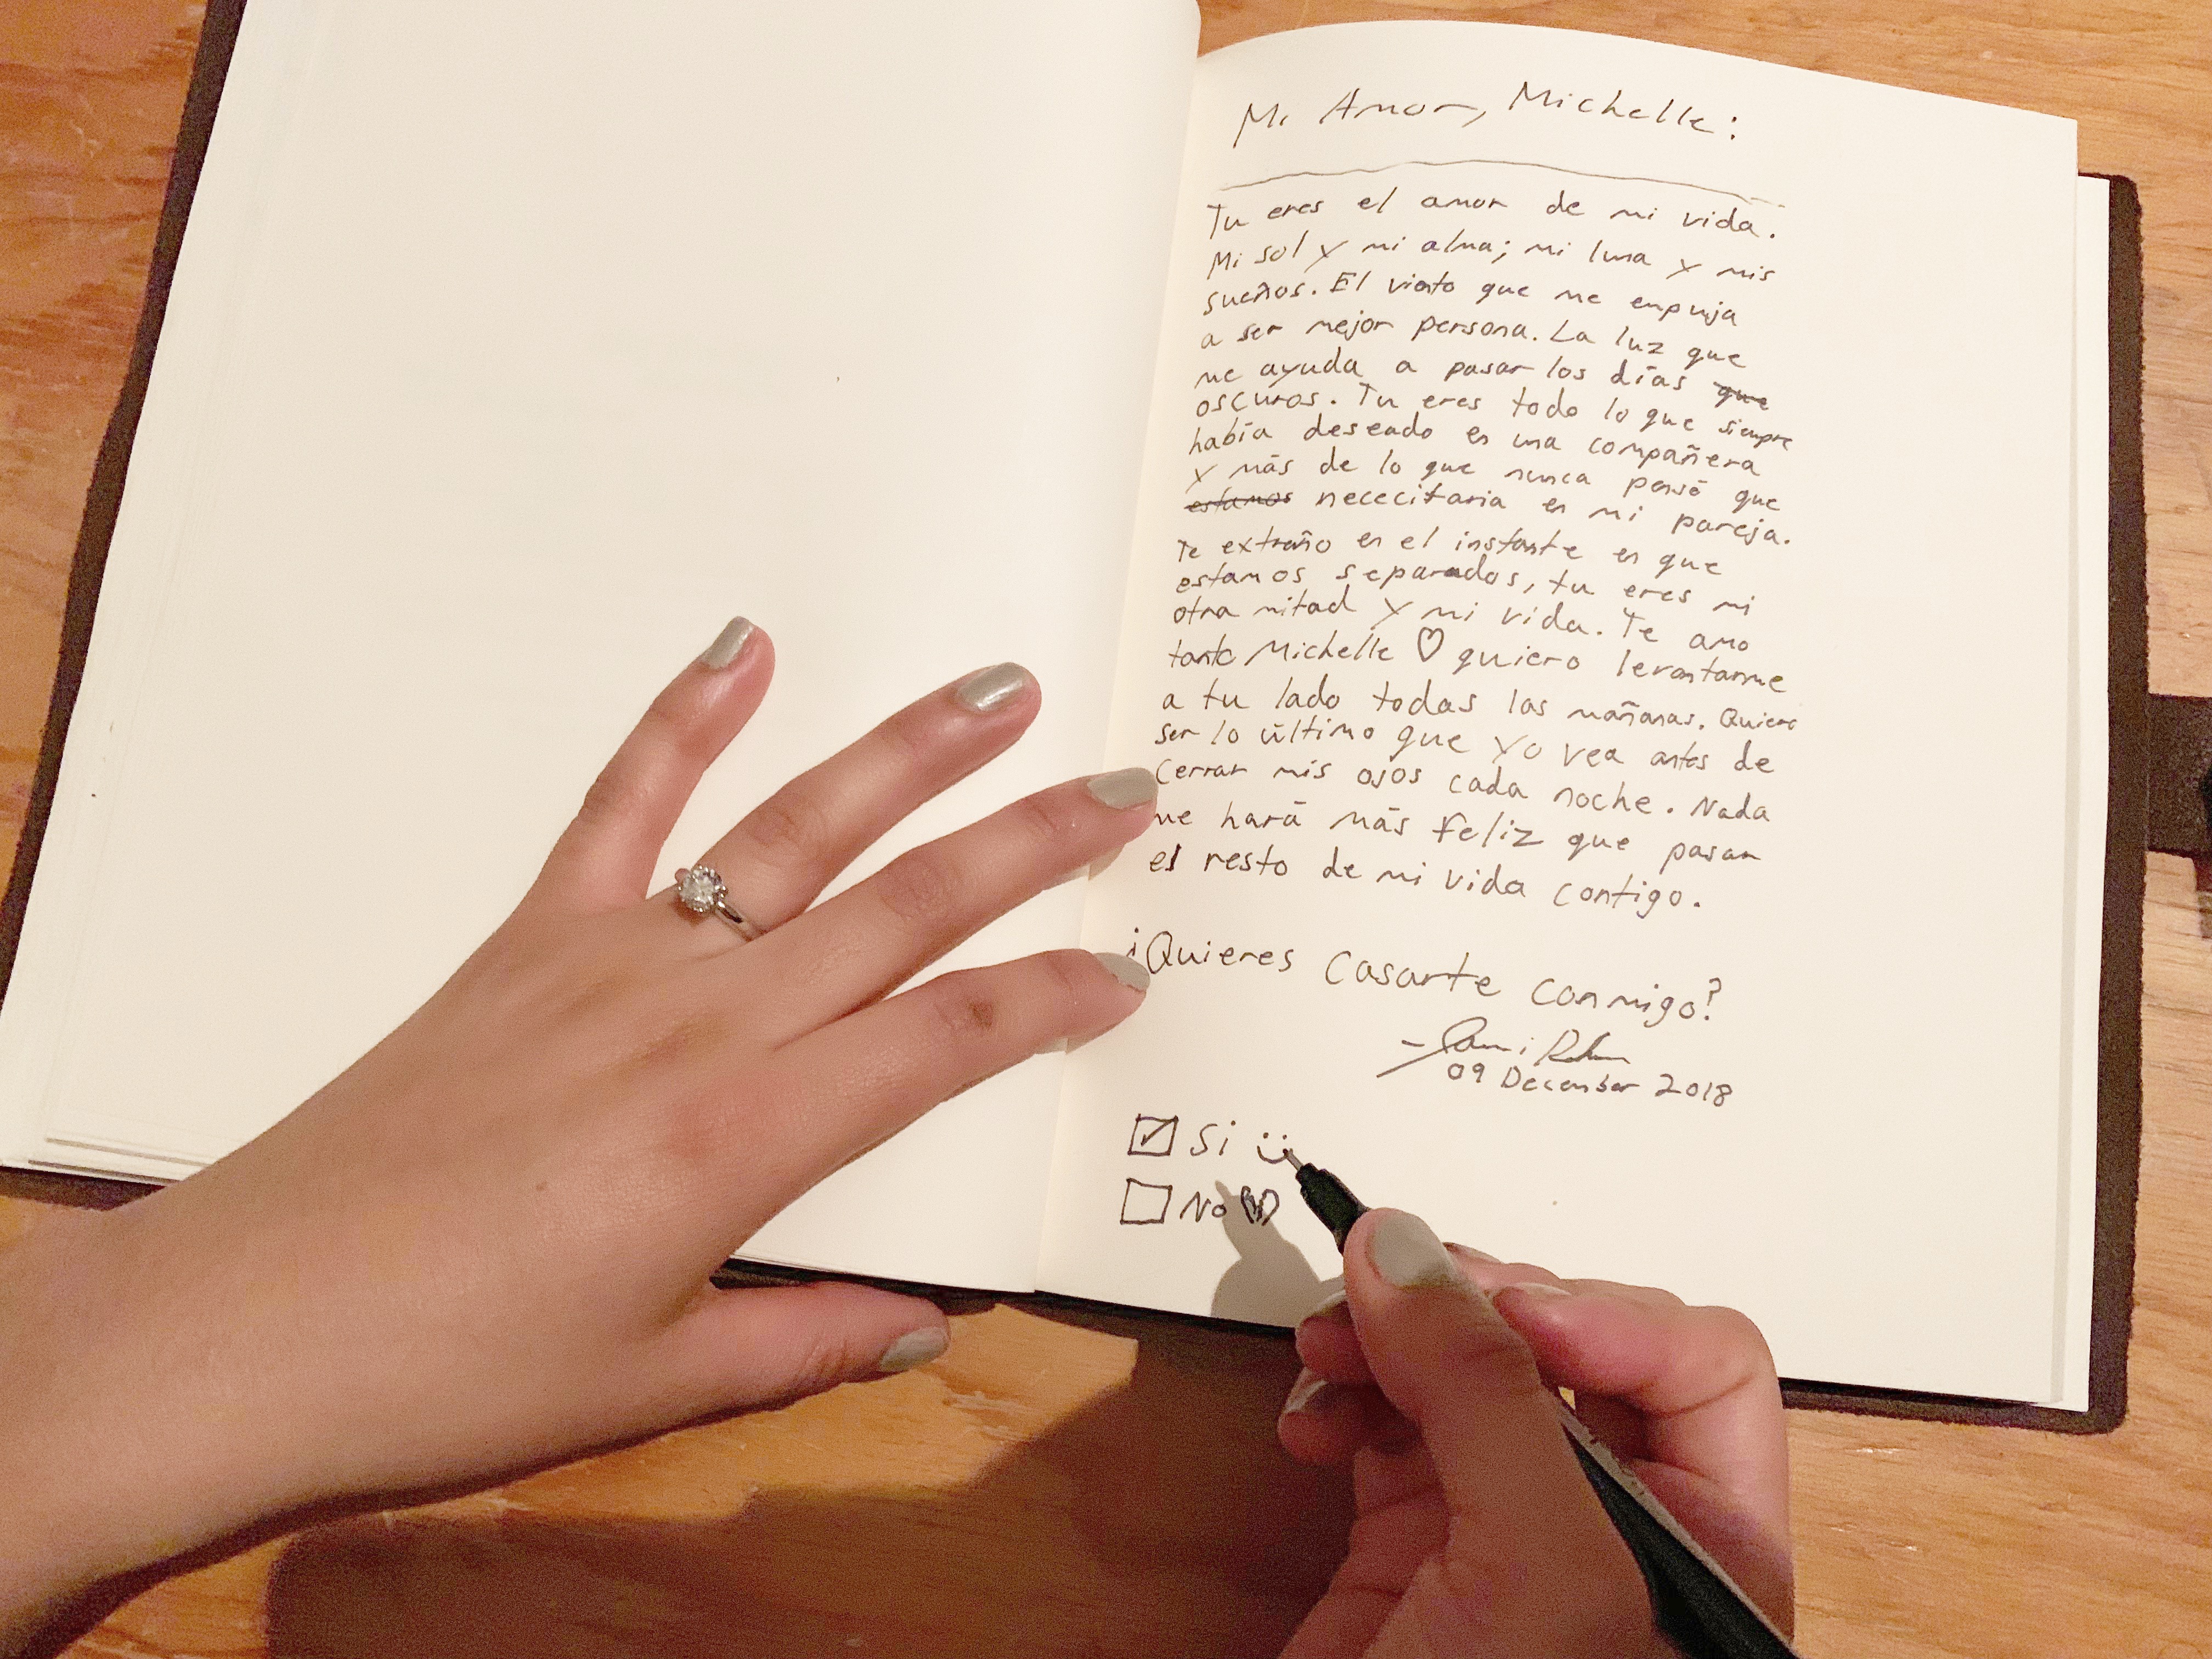 Mi Amor, Michelle:
Tu eres el amor de mi vida.
Mi sol y mi alma; mi luna y mis
sueños. El viento que me empuja
a ser mejor persona. La luz que
me ayuda a pasar los días que
oscuros. Tu eres todo lo que siempre
había deseado en una compañera
y más de lo que nunca pensé que
estamos nececitaria en mi pareja.
Te extraño en el instante en que
estamos separados, tu eres mi
otra mitad y mi vida. Te amo
tanto Michelle ♡ quiero levantarme
a tu lado todas las mañanas. Quiero
ser lo último que yo vea antes de
cerrar mis ojos cada noche. Nada
me hará más feliz que pasar
el resto de mi vida contigo.
¡Quieres casarte conmigo?
09 December 2018
Si :)
No